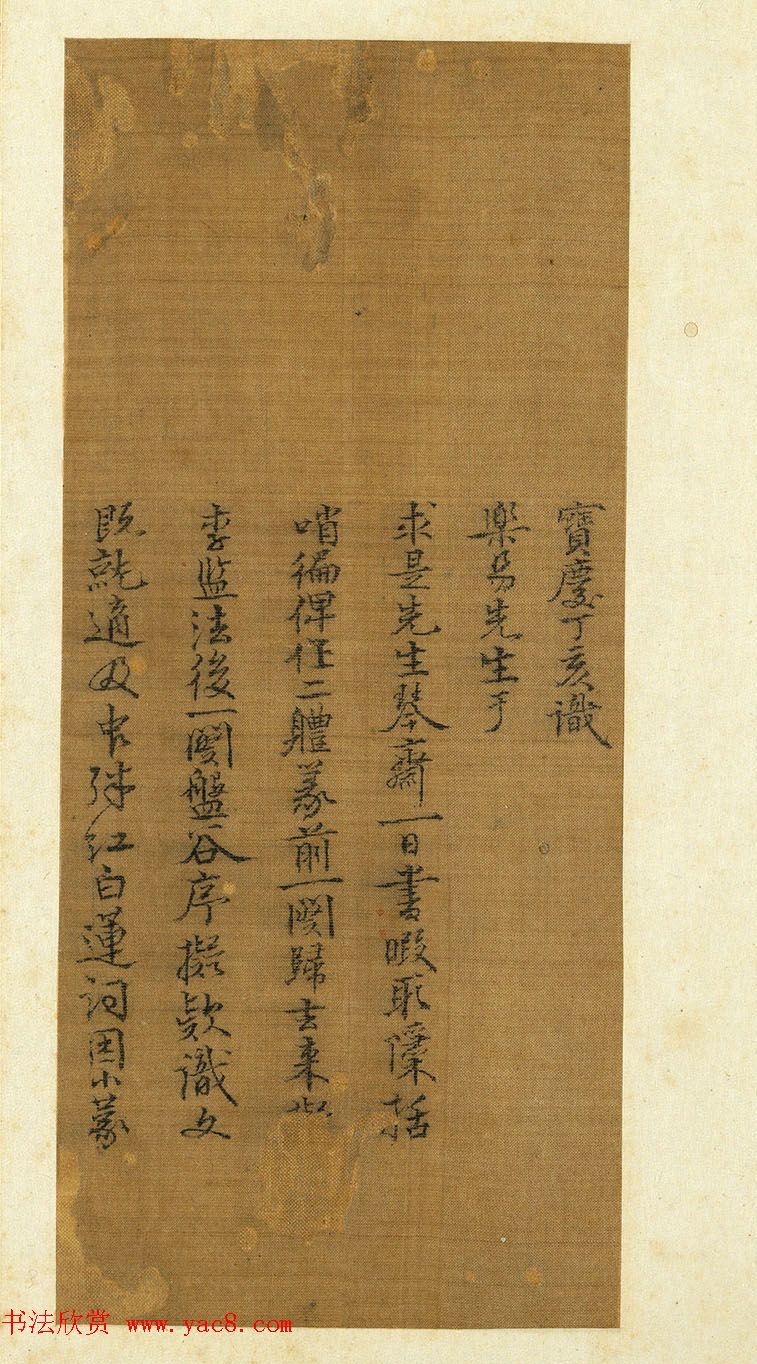 寶慶丁亥識
樂易先生于
求是先生琴齋一日書暇取隱括
哨徧俾作二體篆前一闋歸去來
李監法後一闋盤谷序擬款識文
既就適及紅白蓮詞因小篆
书法欣赏 www.yac8.com